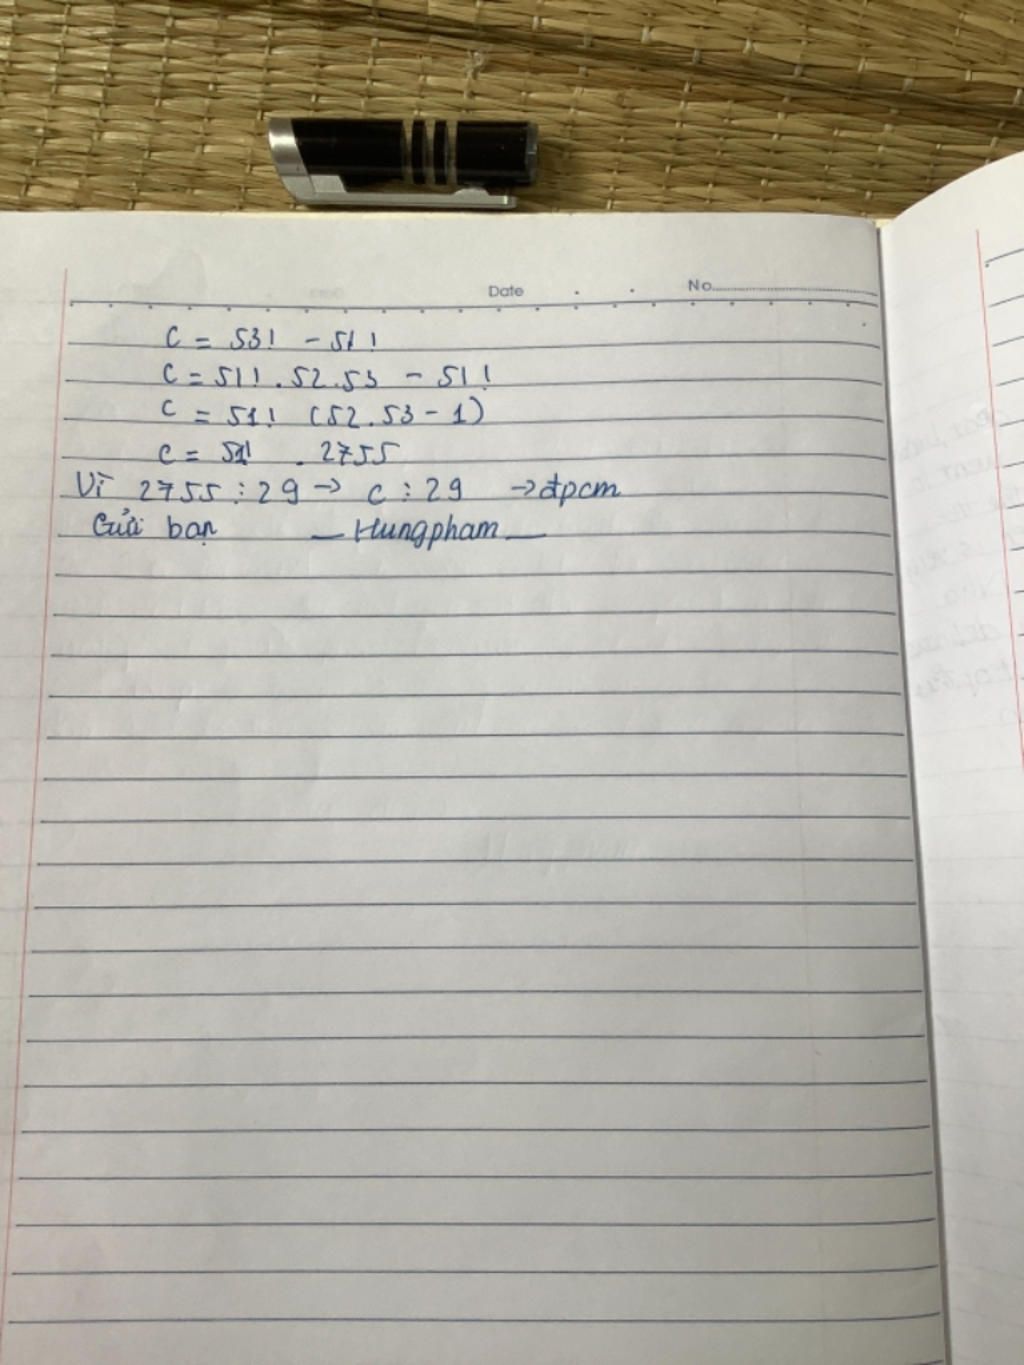 Date No
C = 53! - 51!
C = 51! . 52.53 - 51!
C = 51! (52.53 - 1)
C = 51! . 2755
Vì 2755 ⋮ 29 → C ⋮ 29 → đpcm
Gửi bạn — Hungpham —